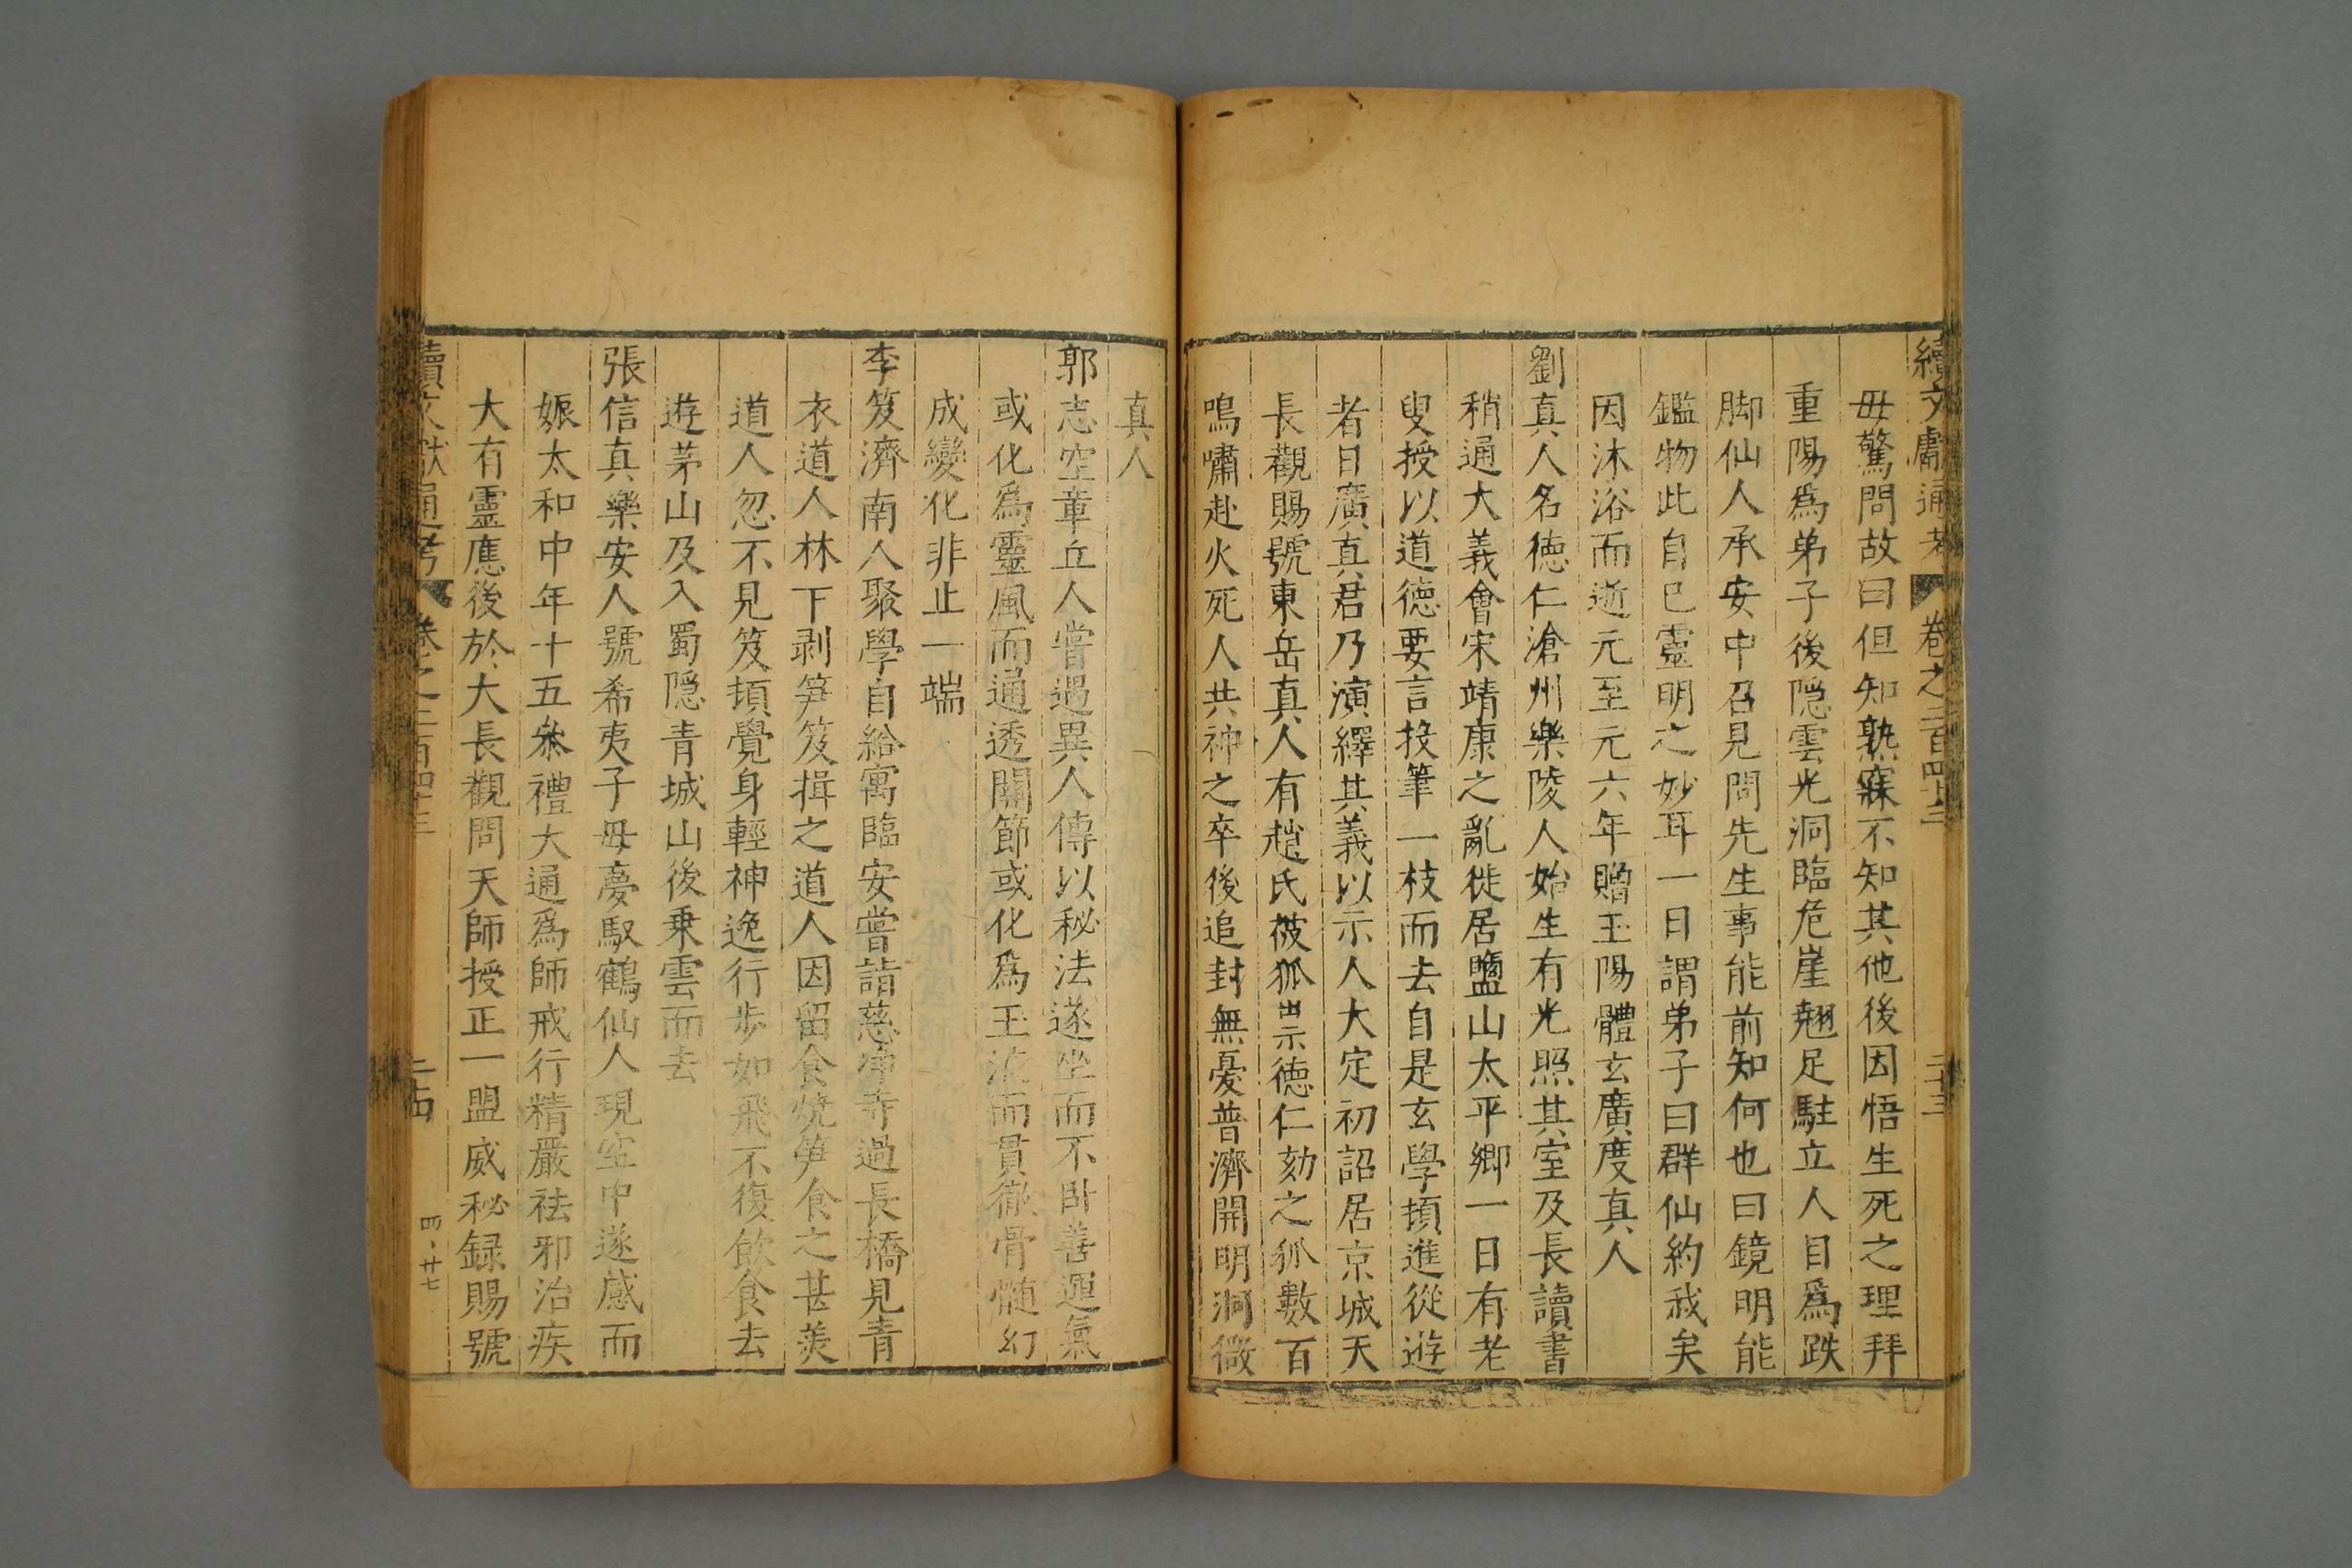 續文獻通考 卷之二百四十三 二十三
毋驚問故曰但知熟寐不知其他後因悟生死之理拜
重陽爲弟子後隠雲光洞臨危崖翹足駐立人目爲跌
脚仙人承安中召見問先生事能前知何也曰鏡明能
鑑物此自已靈明之妙耳一日謂弟子曰群仙約我矣
因沐浴而逝元至元六年贈玉陽體玄廣度真人
劉真人名德仁滄州樂陵人始生有光照其室及長讀書
稍通大義會宋靖康之亂徙居鹽山太平鄉一日有老
叟授以道德要言投筆一枝而去自是玄學頓進從遊
者日廣真君乃演繹其義以示人大定初詔居京城天
長觀賜號東岳真人有趙氏葰狐祟德仁劾之狐數百
鳴嘯赴火死人共神之卒後追封無憂普濟開明洞微
真人
郭志空章丘人嘗遇異人傳以秘法遂坐而不卧善運氣
或化爲靈風而通透關節或化爲玉液而貫徹骨髓幻
成變化非止一端
李笈濟南人聚學自給寓臨安嘗詣慈净寺過長橋見青
衣道人林下剥笋笈揖之道人因留食燒笋食之甚美
道人忽不見笈頓覺身輕神逸行步如飛不復飲食去
遊茅山及入蜀隠青城山後乗雲而去
張信真樂安人號希夷子母夢馭鶴仙人現空中遂感而
娠太和中年十五叅禮大通爲師戒行精嚴祛邪治疾
大有靈應後於大長觀問天師授正一盟威秘録賜號
續文獻通考 卷之二百四十三 二十四
四、廿七